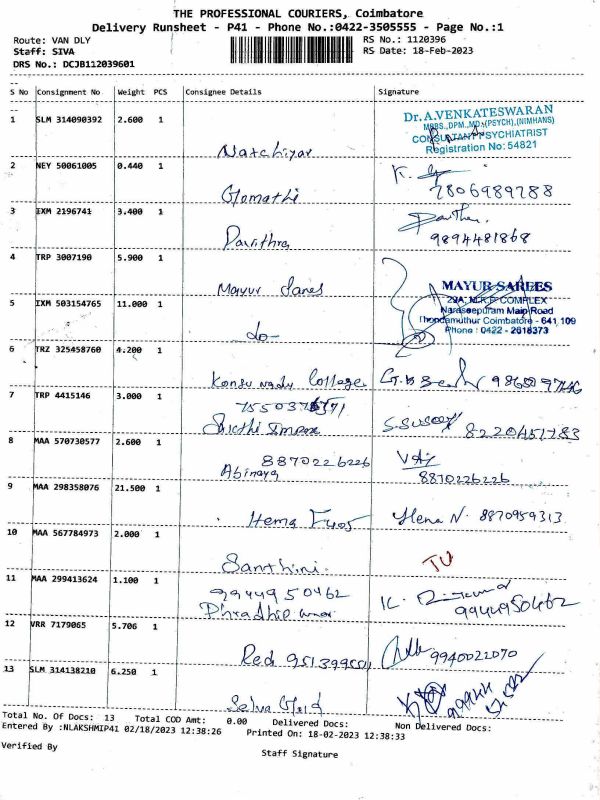 THE PROFESSIONAL COURIERS, Coimbatore
Delivery Runsheet - P41 - Phone No.:0422-3505555 - Page No.:1
Route: VAN DLY
RS No.: 1120396
Staff: SIVA
RS Date: 18-Feb-2023
DRS No.: DCJB112039601
S No Consignment No Weight PCS Consignee Details Signature
1 SLM 314090392 2.600 1
Dr. A.VENKATESWARAN
MBBS.,DPM.,MD.,(PSYCH),(NIMHANS)
CONSULTANT PSYCHIATRIST
Registration No: 54821
Natchiyar
2 NEY 50061005 0.440 1
Gomathi
7806989788
3 IXM 2196741 3.400 1
Pavithra
9894481868
4 TRP 3007190 5.900 1
Mayur Sarees
MAYUR SAREES
29A, M.R.P COMPLEX
Naraseepuram Main Road
Thondamuthur Coimbatore - 641 109
Phone : 0422 - 2618373
5 IXM 503154765 11.000 1
do-
6 TRZ 325458760 4.200 1
Kongu nadu College
7 TRP 4415146 3.000 1
Sakthi Impex
8220451783
8 MAA 570730577 2.600 1
8870226226
Abinaya
8870226226
9 MAA 298358076 21.500 1
Hema
Hena N. 8870959313
10 MAA 567784973 2.000 1
Santhini.
TU
11 MAA 299413624 1.100 1
9944950462
Phradhip
9944950462
12 VRR 7179065 5.706 1
Red
9940022070
13 SLM 314138210 6.250 1
Selva
Total No. Of Docs: 13 Total COD Amt: 0.00 Delivered Docs: Non Delivered Docs:
Entered By :NLAKSHMIP41 02/18/2023 12:38:26 Printed On: 18-02-2023 12:38:33
Verified By
Staff Signature